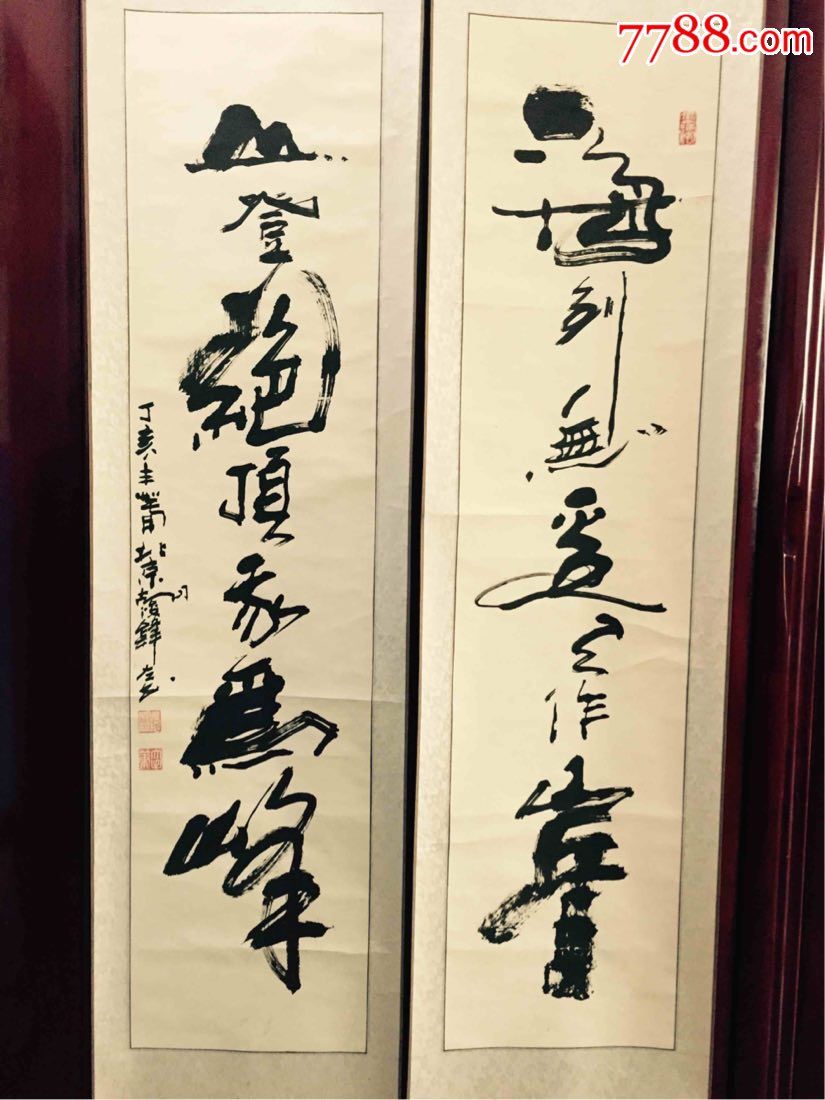 7788.com
海到無邊天作岸
山登絕頂我為峰
丁亥